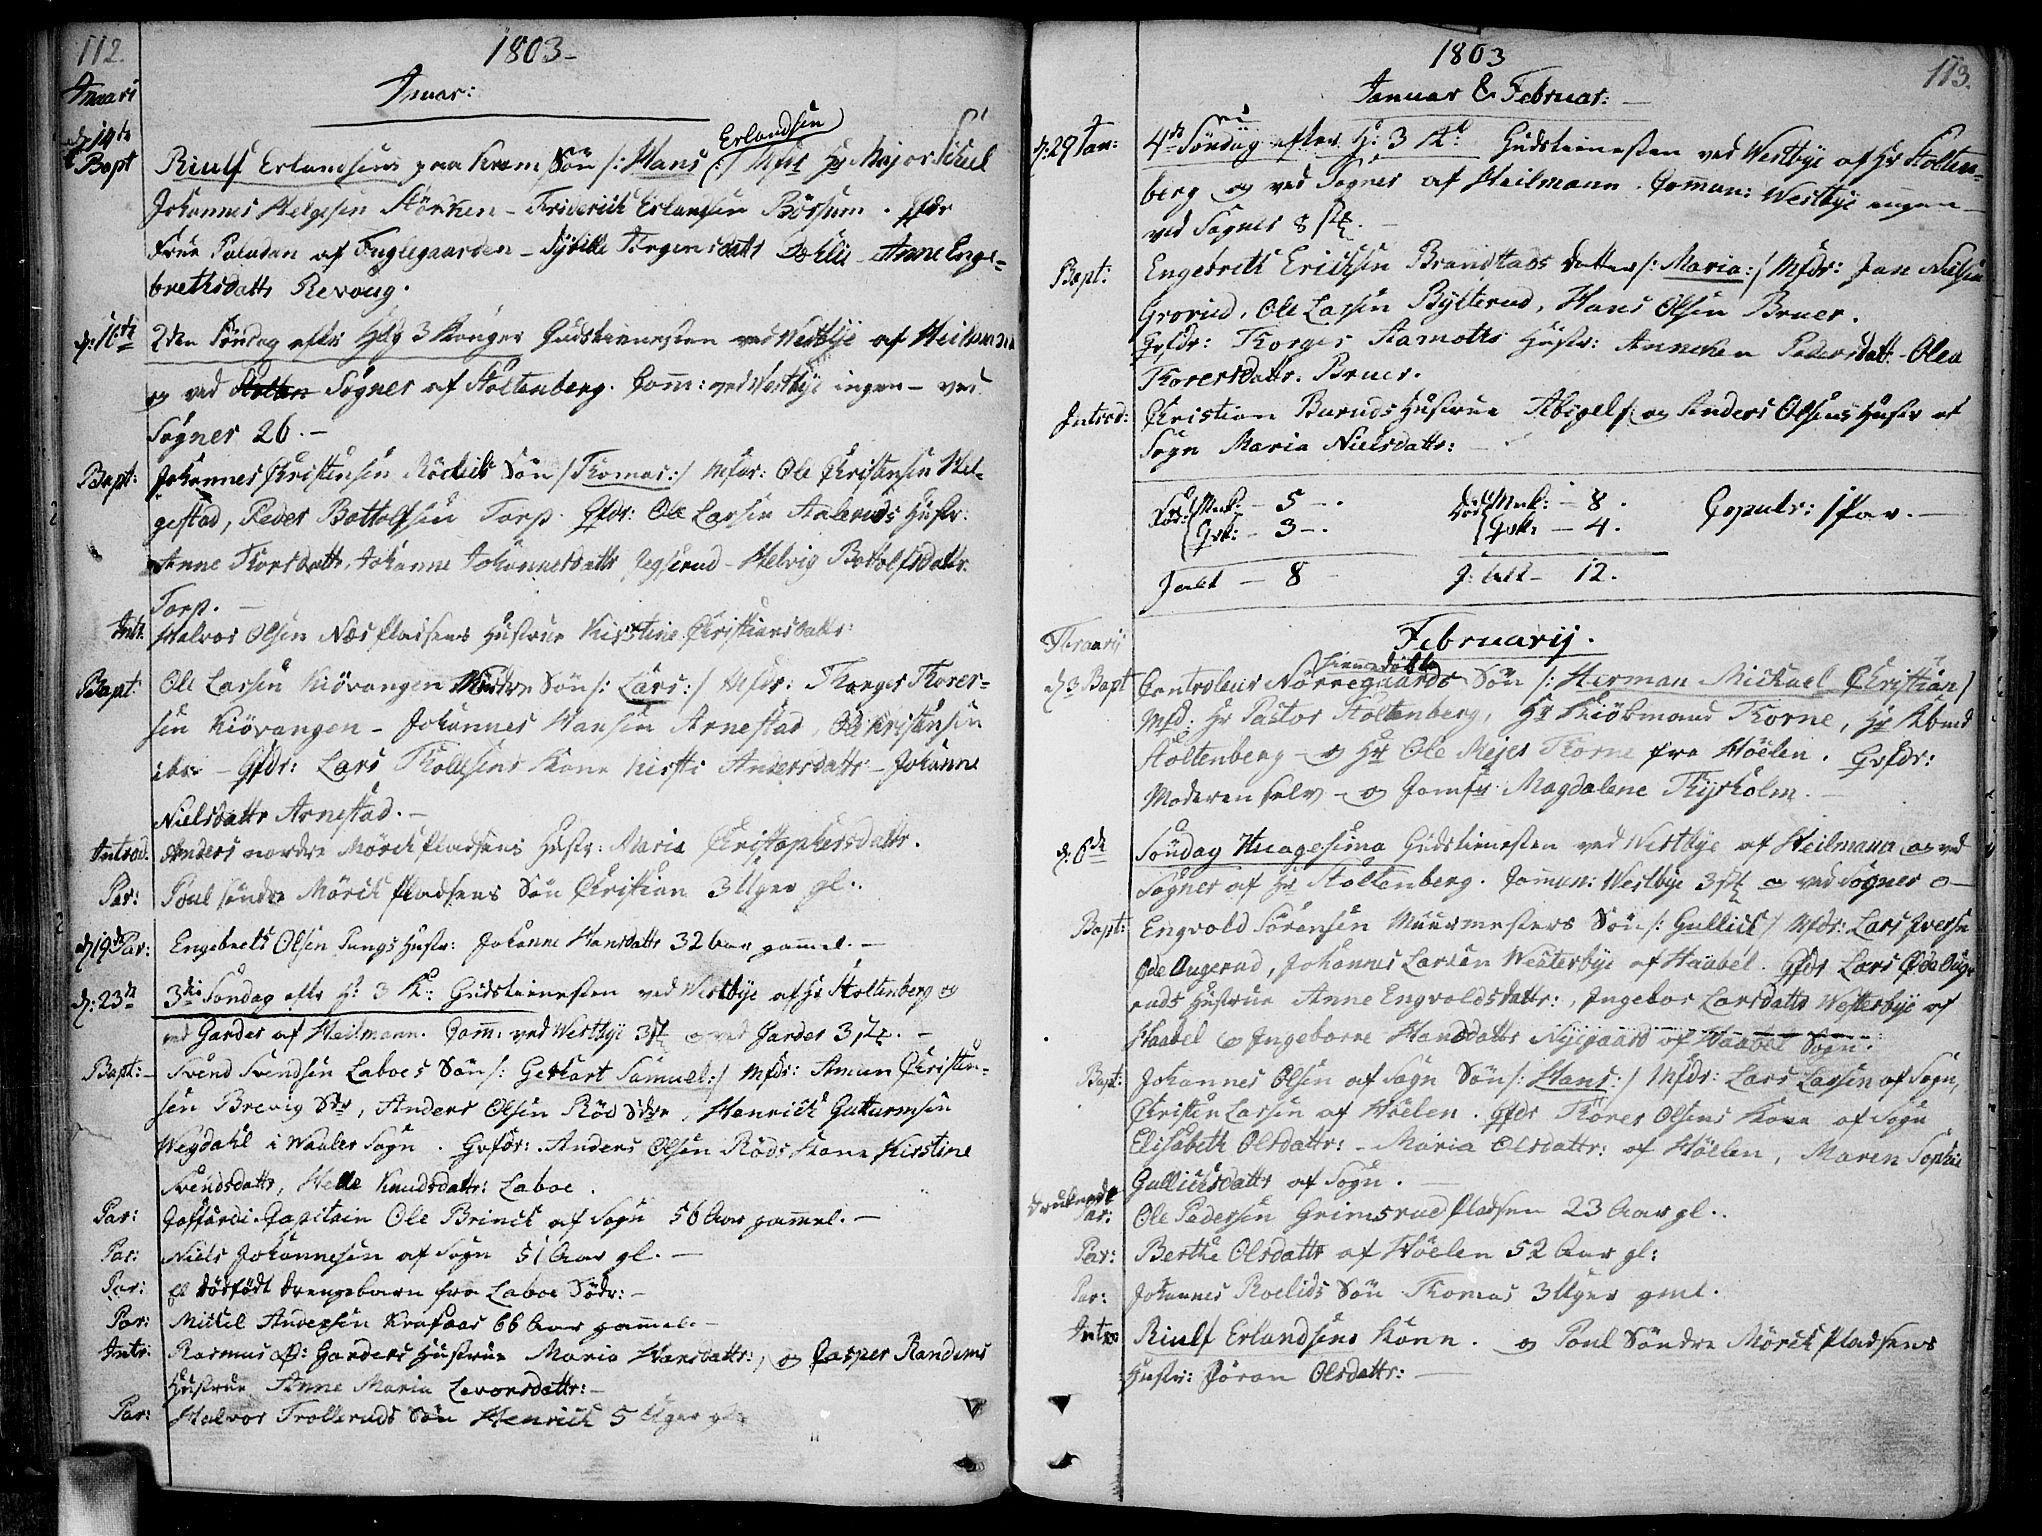 112.
1803-
Januari
Januar:
d 14de
Bapt
Riulf Erlandsens paa Krom Søn /: Hans Erlandsen :/ Mfdr Hr Major
Johannes Helgesen Størken - Friderich Erlandsen Börsum. Qfdr
Frue Paludan af Fuglegaarden - Sybille Jörgensdattr Dehlie - Anne Enge-
brethsdattr Revoug.
d: 16de 2den Söndag eftr Hlg 3 Konger Gudstienesten ved Westbÿe af Heilmann
og ved Sogner af Stoltenberg. Com: ved Westbÿe ingen - ved
Sogner 26. -
Bapt: Johannes Christensen Röelids Søn /: Thomas :/ Mfdr: Ole Christensen Hel-
gestad, Peder Bottolfsen Torp. Qfdr: Ole Larsen Aaleruds Hustr:
Anne Thorsdattr, Johanne Johannesdattr Jegserud - Helvig Botolfsdattr
Torp. -
Intr. Halvor Olsen Næs Pladsens Hustrue Kirstine Christiansdattr:
Bapt: Ole Larsen Kiövangen Søndre Søn /: Lars :/ Mfdr: Thorger Thorer-
sen Kiövangen - Johannes Hansen Arnestad, Ole Christensen
ibr - Qfdr: Lars Tholesens Kone Kirsti Andersdattr - Johanne
Nielsdattr Arnestad. -
Introd: Anders nordre Mörck Pladsens Hustr: Maria Christophersdattr.
Par: Poul söndre Mörck Pladsens Søn Christian 3 Uger gl.
d 19de Par: Engebrets Olsen Pungs Hustr: Johanne Hansdattr 32 Aar gammel. -
d: 23de 3die Søndag eftr H: 3 K: Gudstienesten ved Westbÿe af Hr Stoltenberg og
ved Garder af Heilmann. Com: ved Westbÿe 3 st og ved Garder 3 st. -
Bapt: Svend Svendsen Laboes Søn /: Gerhart Samuel :/ Mfdr: Amun Christen-
sen Brevig Sdr, Anders Olsen Röd Sdre, Henrich Gutturmsen
Weydahl i Waaler Sogn. Qvfdr: Anders Olsen Röds Kone Kirstine
Svendsdattr, Helle Knudsdattr: Laboe.
Par: Coffardi Capitain Ole Brinch af Sogn 56 Aar gammel. -
Par: Niels Johannesen af Sogn 51 Aar gl. -
Par: Et dödfödt Drengebarn fra Laboe Södr: -
Par: Mickel Andersen Krafaas 66 Aar gammel. -
Intr: Rasmus Garders Hustrue Maria Hansdattr:, og Casper Randems
Hustrue Anne Maria Levorsdattr: -
Par: Halvor Trolleruds Søn Henrich 5 Uger gl.
1803
113.
Januar & Februar: -
d: 29 Jan: 4de Söndag efter H: 3 K: Gudstienesten ved Westbÿe af Hr Stolten-
berg og ved Sogner af Heilmann. Commun: Westbÿe ingen -
ved Sogner 8 st. -
Bapt: Engebreth Erichsen Brandstads Datter /: Maria :/ Mfdr: Jan Nielsen
Grorud, Ole Larsen Bÿlterud, Hans Olsen Bruer.
Qvfdr: Thorger Aamoths Hustr: Anneken Pedersdatt - Olea
Thorersdattr. Bruer.
Introd: Christian Buruds Hustrue Abigel /: og Anders Olsens Hustr af
Sogn Maria Nielsdattr:
Föd: Mnk: - 5 -. Död Mnk: - 8. Copuls: 1 Par. -
Qvk: - 3 -. Qvk: - 4.
Jalt - 8 - J: alt - 12.
Februarij.
d 3 Bapt Controleur Nörregaards Søn /: Herman Michael Christian /
Mfd: Hr Pastor Stoltenberg, Hr Kiöbmand Thorne, Hr
Stoltenberg - og Hr Ole Mejer Thorne fra Höelen. Qvfdr:
Moderen selv - og Jomfr Magdalene Thyrholm. -
d: 6de Söndag Gudstienesten ved Westbÿe af Heilmann og ved
Sogner af Hr Stoltenberg. Comun: Westbÿe 3 st og ved Sogner 0 -
Bapt: Engvold Sörensen Muurmesters Søn /: Gullich / Mfdr: Lars Iversen
Öde Augerud, Johannes Larsen Westerbÿe af Haabel. Qfdr Lars Öde Auge-
ruds Hustrue Anne Engvoldsdattr:, Ingebor Larsdattr Westerbÿe af
Haabel og Ingeborre Hansdattr Nÿegaard af Haabel Sogn.
Bapt: Johannes Olsen af Sogn Søn /: Hans :/ Mfdr: Lars Larsen af Sogn,
Christen Larsen af Höelen. Qfdr Thorer Olsens Kone af Sogn
Elisabeth Olsdattr: - Maria Olsdattr: af Höelen, Maren Sophie
Gullichsdattr af Sogn. -
Druknede
Par: Ole Pedersen Grimsrud Pladsen 23 Aar gl.
Par: Berthe Olsdattr af Höelen 52 Aar gl:
Par: Johannes Roelids Søn Thomas 3 Uger gml.
Intro Riulf Erlandsens Konn. og Poul Söndre Mörch Pladsens
Hustr: Jöran Olsdattr: -